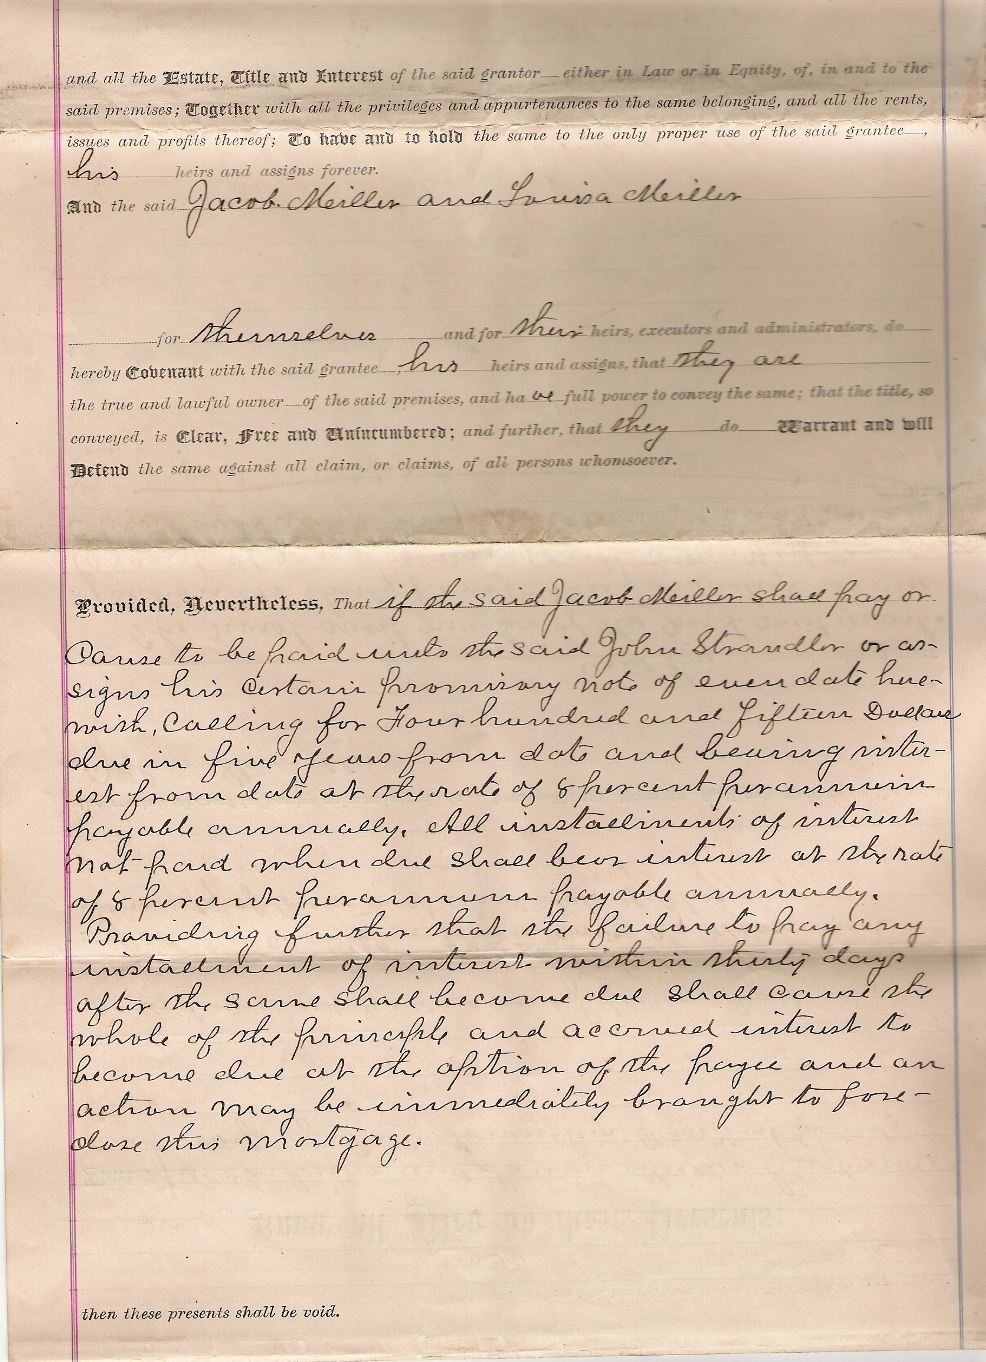 and all the Estate, Title and Interest of the said grantor either in Law or in Equity, of, in and to the
said premises; Together with all the privileges and appurtenances to the same belonging, and all the rents,
issues and profits thereof; To have and to hold the same to the only proper use of the said grantee ,
his heirs and assigns forever.
And the said Jacob Meiller and Louisa Meiller
for themselves and for their heirs, executors and administrators, do
hereby Covenant with the said grantee , his heirs and assigns, that they are
the true and lawful owner of the said premises, and have full power to convey the same; that the title, so
conveyed, is Clear, Free and Unincumbered; and further, that they do Warrant and will
Defend the same against all claim, or claims, of all persons whomsoever.
Provided, Nevertheless, That if the said Jacob Meiller shall pay or
Cause to be paid unto the said John Strandler or as-
signs his Certain promissory note of even date here-
with, Calling for Four hundred and fifteen Dollars
due in five years from date and bearing inter-
est from date at the rate of 8 percent per annum
payable annually. All installments of interest
not paid when due shall bear interest at the rate
of 8 percent per annum payable annually.
Providing further that the failure to pay any
installment of interest within thirty days
after the same shall become due shall cause the
whole of the principle and accrued interest to
become due at the option of the payee and an
action may be immediately brought to fore-
close this mortgage.
then these presents shall be void.